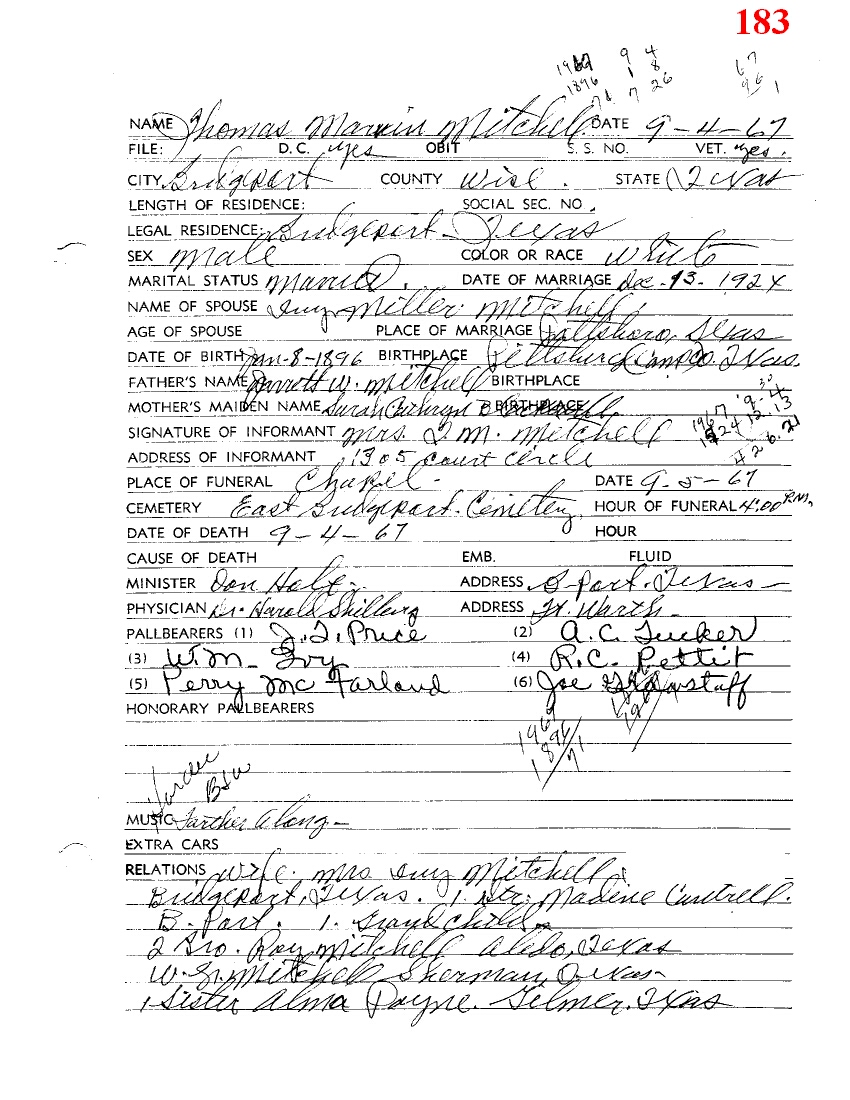 183
1967 9 4
1896 1 8
71 7 26
67
96 1
NAME Thomas Marvin Mitchell DATE 9-4-67
FILE: D.C. yes OBIT S. S. NO. VET. yes.
CITY Bridgeport COUNTY Wise. STATE Texas
LENGTH OF RESIDENCE: SOCIAL SEC. NO.
LEGAL RESIDENCE: Bridgeport - Texas
SEX Male COLOR OR RACE White
MARITAL STATUS Married. DATE OF MARRIAGE Dec. 13. 1924
NAME OF SPOUSE Miller Mitchell
AGE OF SPOUSE PLACE OF MARRIAGE Texas
DATE OF BIRTH Jan-8-1896 BIRTHPLACE Pittsburg Camp Co. Texas.
FATHER'S NAME W. Mitchell BIRTHPLACE
MOTHER'S MAIDEN NAME Sarah Cathryn BIRTHPLACE
1967 9-4
1924 12-13
SIGNATURE OF INFORMANT Mrs. T M. Mitchell
ADDRESS OF INFORMANT 1305 Court Circle
PLACE OF FUNERAL Chapel - DATE 9-5-67
CEMETERY East Bridgeport Cemetery HOUR OF FUNERAL 4:00 P.M.
DATE OF DEATH 9-4-67 HOUR
CAUSE OF DEATH EMB. FLUID
MINISTER Don Holt - ADDRESS B-Port. Texas -
PHYSICIAN Dr. Harold Shilling ADDRESS Ft. Worth -
PALLBEARERS (1) J. T. Price (2) A.C. Tucker
(3) W.M. Ivy (4) R.C. Pettit
(5) Perry McFarland (6) Joe
HONORARY PALLBEARERS
1967
1896
71
MUSIC Farther Along -
EXTRA CARS
RELATIONS Wife. Mrs Mitchell
Bridgeport, Texas. 1. Dtr. Madine Cantrell.
B. Port. 1. Grand Child
2 Bro. Roy Mitchell Aledo, Texas
Mitchell Sherman, Texas -
1 Sister Alma Payne. Gilmer, Texas